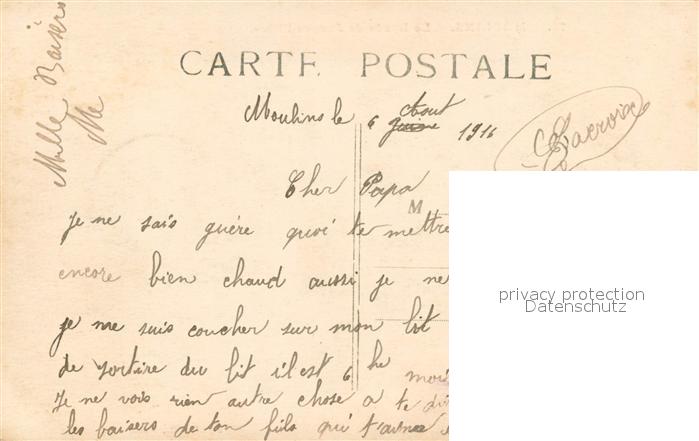 CARTE POSTALE
Mille Baisers
Moulins le 6 Aout 1916
Lacroix
Cher Papa
M
je ne sais guère quoi te mettre
encore bien chaud aussi je ne
je me suis coucher sur mon lit
de sortire du lit il est 6 he
je ne vois rien autre chose a te
les baisers de ton fils qui t'aime
privacy protection
Datenschutz